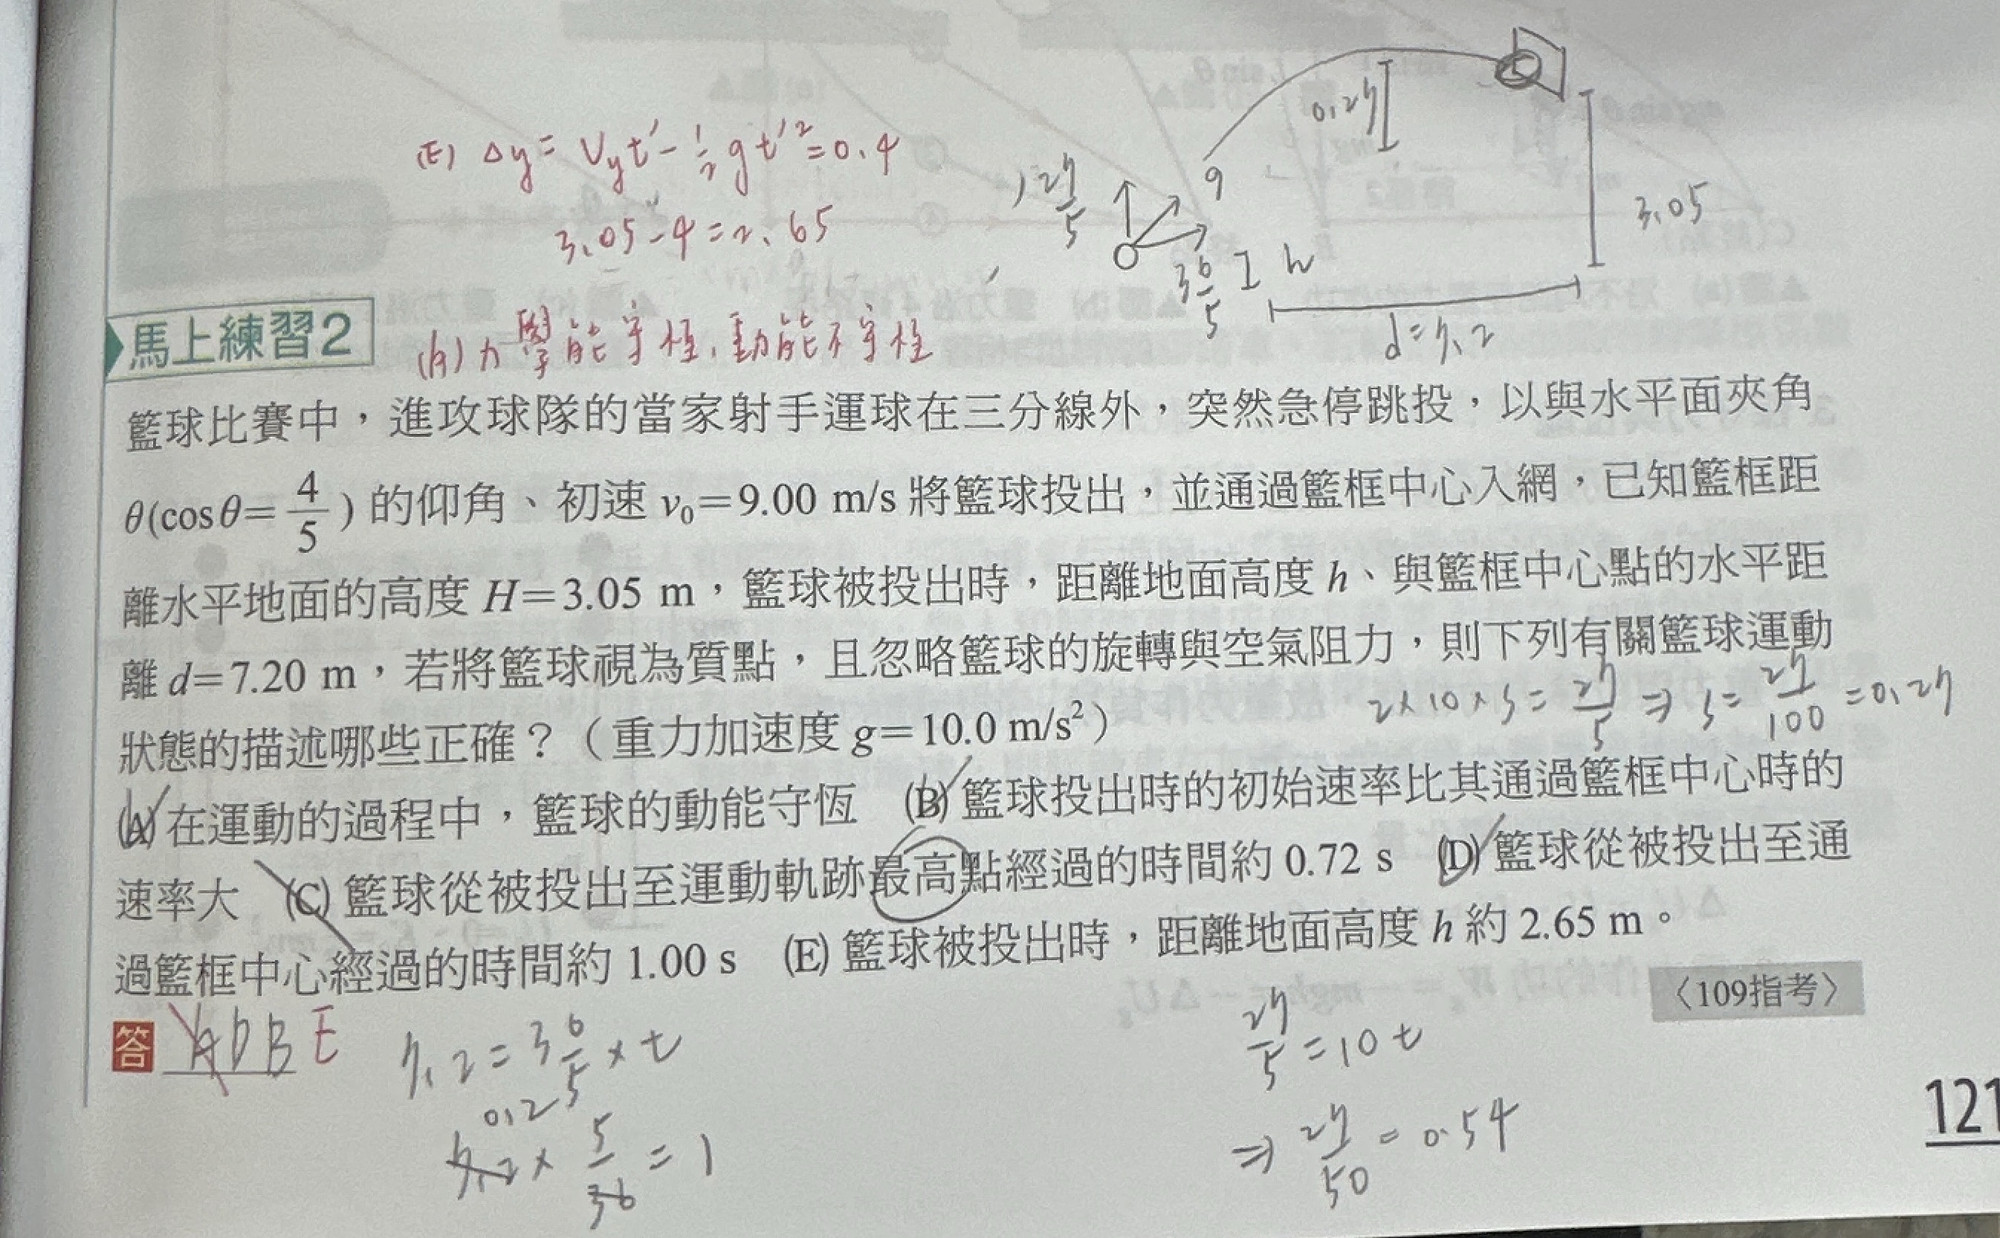 (E) Δy = Vyt' - 1/2 gt'² = 0.4
3.05 - 4 = 2.65
(A) 力學能守恆，動能不守恆
27/5
9
36/5
h
0.27
3.05
d = 7.2
馬上練習2
籃球比賽中，進攻球隊的當家射手運球在三分線外，突然急停跳投，以與水平面夾角
θ(cosθ=4/5)的仰角、初速 v₀=9.00 m/s 將籃球投出，並通過籃框中心入網，已知籃框距
離水平地面的高度 H=3.05 m，籃球被投出時，距離地面高度 h、與籃框中心點的水平距
離 d=7.20 m，若將籃球視為質點，且忽略籃球的旋轉與空氣阻力，則下列有關籃球運動
狀態的描述哪些正確？（重力加速度 g=10.0 m/s²）
2×10×s = 27/5 ⇒ s = 27/100 = 0.27
(A) 在運動的過程中，籃球的動能守恆 (B) 籃球投出時的初始速率比其通過籃框中心時的
速率大 (C) 籃球從被投出至運動軌跡最高點經過的時間約 0.72 s (D) 籃球從被投出至通
過籃框中心經過的時間約 1.00 s (E) 籃球被投出時，距離地面高度 h 約 2.65 m。
〈109指考〉
答 A D B E
7.2 = 36/5 × t
0.2
7.2 × 5/36 = 1
27/5 = 10t
⇒ 27/50 = 0.54
121